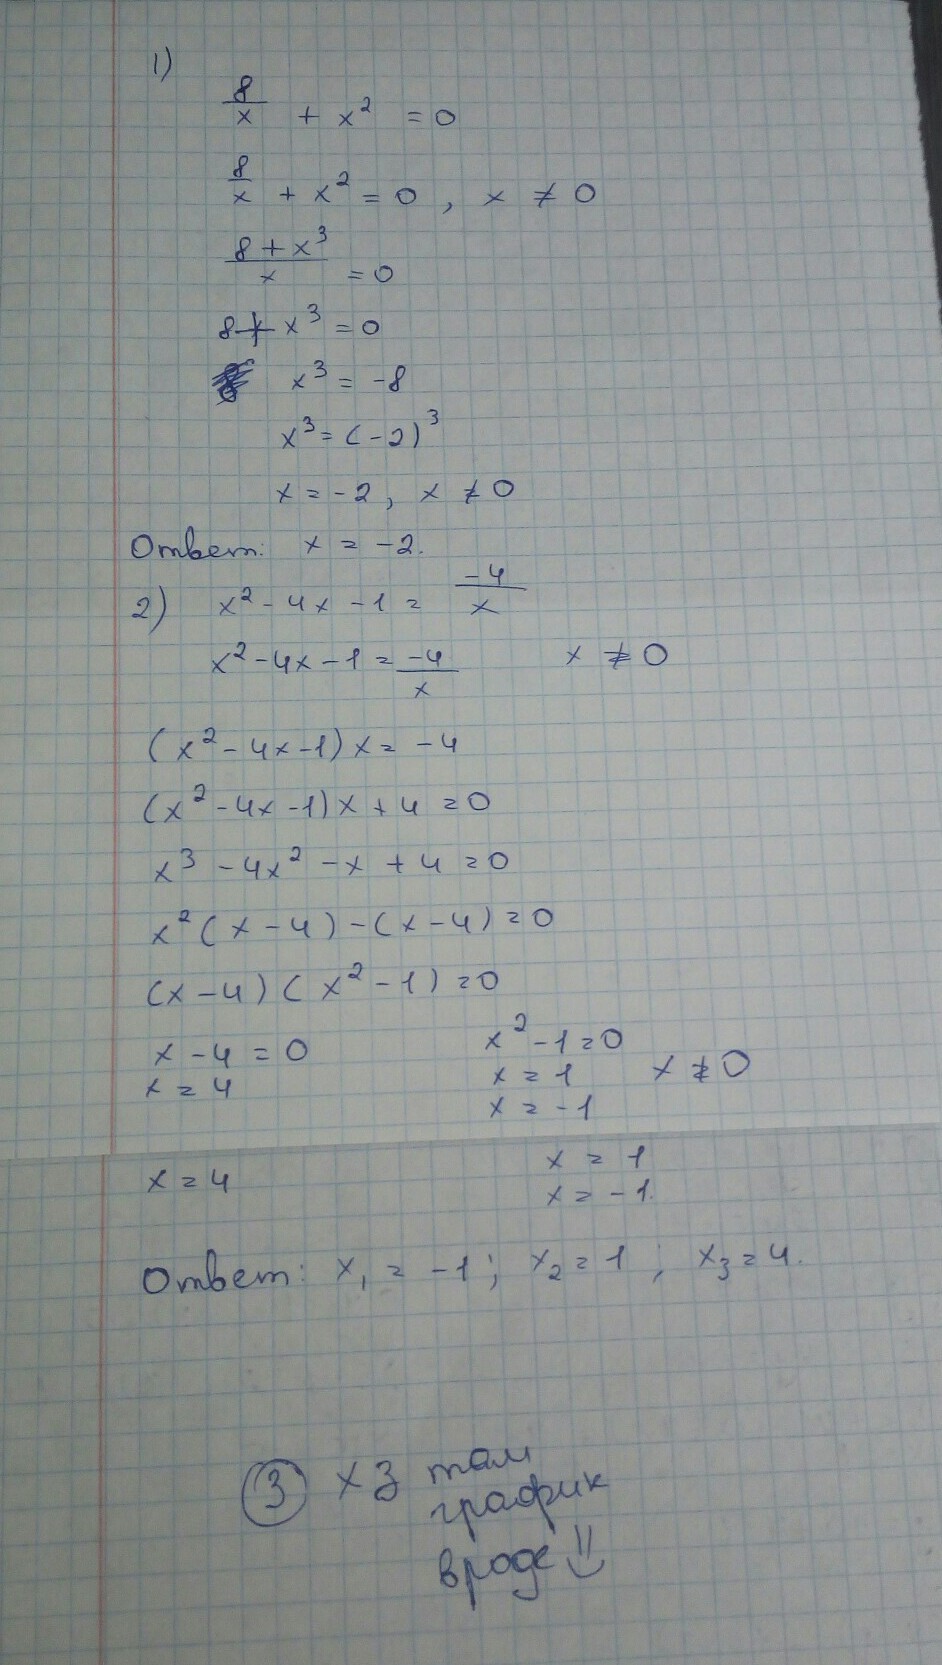 1)
8/x + x² = 0
8/x + x² = 0 , x ≠ 0
(8 + x³)/x = 0
8 + x³ = 0
x³ = -8
x³ = (-2)³
x = -2 , x ≠ 0
Ответ: x = -2.
2) x² - 4x - 1 = -4/x
x² - 4x - 1 = -4/x x ≠ 0
(x² - 4x - 1) x = -4
(x² - 4x - 1) x + 4 = 0
x³ - 4x² - x + 4 = 0
x² (x - 4) - (x - 4) = 0
(x - 4) (x² - 1) = 0
x - 4 = 0 x² - 1 = 0
x = 4 x = 1 x ≠ 0
x = -1
x = 4 x = 1
x = -1.
Ответ: x₁ = -1 ; x₂ = 1 ; x₃ = 4.
3 хз там
график
вроде